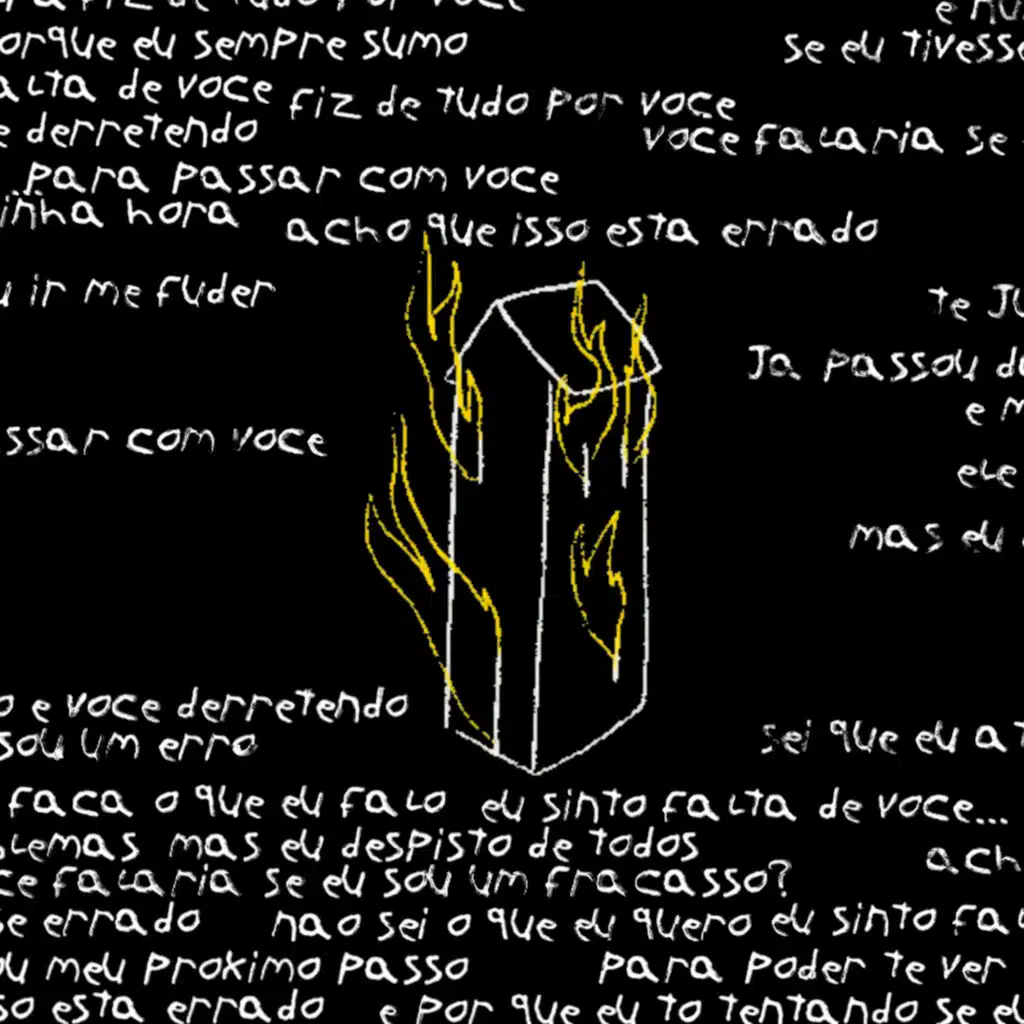 fiz de tudo por voce
e
orque eu sempre sumo
se eu tivesse
alta de voce
fiz de tudo por voce
e derretendo
voce falaria se
para passar com voce
inha hora
acho que isso esta errado
u ir me fuder
te Ju
Ja passou du
e m
ssar com voce
ele
mas eu
o e voce derretendo
sou um erro
sei que eu at
faca o que eu falo
eu sinto falta de voce...
lemas mas eu despisto de todos
ach
ce falaria se eu sou um fracasso?
se errado
nao sei o que eu quero
eu sinto fal
ou meu proximo passo
para poder te ver
so esta errado
e por que eu to tentando se eu